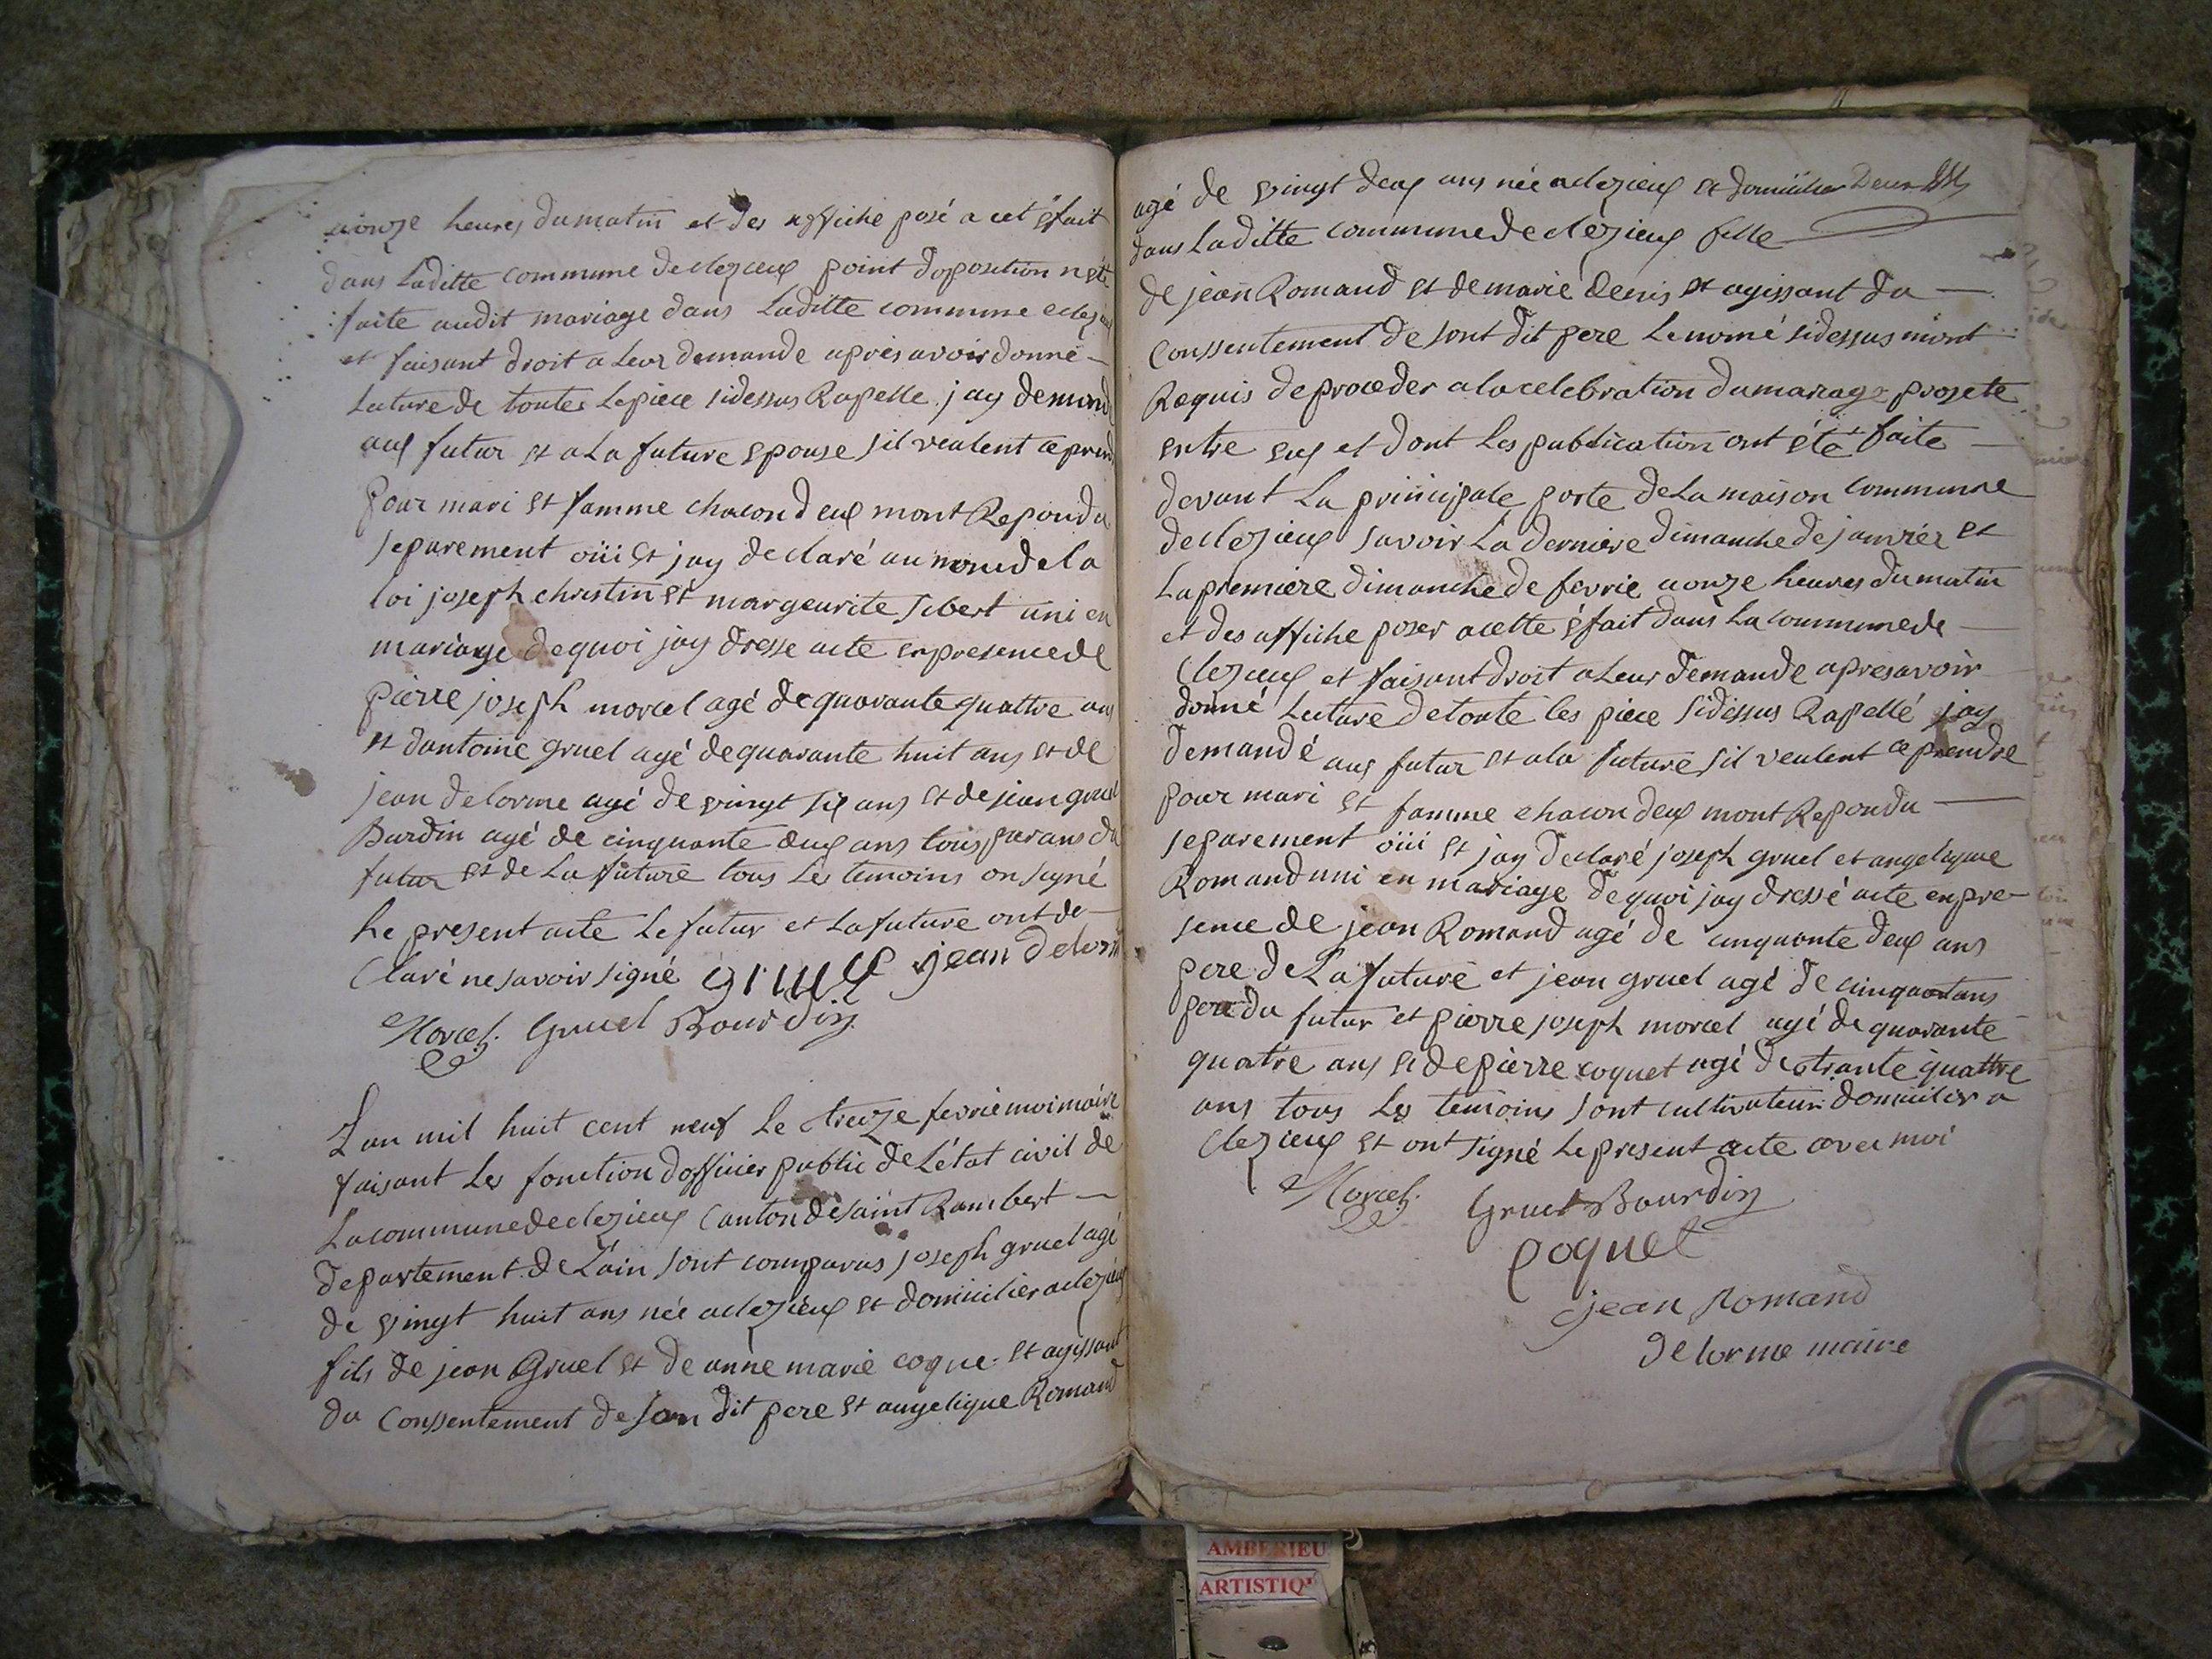 aonze heures dumatin et des affiche posé a cet éfait
dans Laditte commune declezieux point doposition n été
faite audit mariage dans Laditte commune
et faisant droit a Leur demande après avoir donné
Lecture de toutes Lepiece sidessus Rapelle jay demand
aux futur et a La future epouse sil veulent ce prend
Pour mari et famme chacon deux mont Repondu
separement oüi et jay declaré au nomdela
loi joseph christin et margeurite sibert uni en
mariage dequoi jay dresse acte enpresencede
pierre joseph morcel agé de quarante quattre ans
et dantoine gruel agé dequarante huit ans et de
jean delorme agé de vingt six ans et de jean gruel
Burdin agé de cinquante deux ans tous parans du
futur et de La future tous Les temoins on signé
Le present acte Le futur et La future ont de
Claré ne savoir signé gruel jean delorm
Morcel Gruel Bourdin
L an mil huit cent neuf Le treize fevrie moi maire
faisant Les fonction dofficier public de L'état civil de
La commune declezieux Canton de saint Rambert
departement de L'ain sont comparus joseph gruel agé
de vingt huit ans née aclezieux et domicilier aclezieux
fils de jean Gruel et de anne marie coque et agissant
du Conssentement de son dit pere et angelique Romand
agé de vingt deux ans née aclezieux et domicilier
dans Laditte commune de clezieux fille
de jean Romand et demarie denis et agissant du
Conssentement de sont dit pere Le nomé sidessus mont
Requis de proceder a la celebration dumariage projete
entre eux et dont Les publication ont été faite
devant La principale porte de La maison commune
declezieux savoir La derniere dimanche de janvier et
La premiere dimanche de fevrie aonze heures dumatin
et des affiche poser acette éfait dans La communede
Clezieux et faisant droit a Leur demande apres avoir
donné Lecture de toute les piece sidessus Rapellé jay
demandé aux futur et ala future sil veulent ce prendre
pour mari et famme chacon deux mont Repondu
separement oüi et jay declaré joseph gruel et angelique
Romand uni en mariage de quoi jay dressé acte enpre-
sence de jean Romand agé de cinquante deux ans
pere de La future et jean gruel agé de cinquantans
pere du futur et pierre joseph morcel agé de quarante
quatre ans et de pierre coquet agé de trante quattre
ans tous Les temoins sont cultivateur domicilier a
Clezieux et ont signé Le present acte avec moi
Morcel Gruel Bourdin
coquet
jean Romand
delorme maire
AMBERIEU
ARTISTIQ